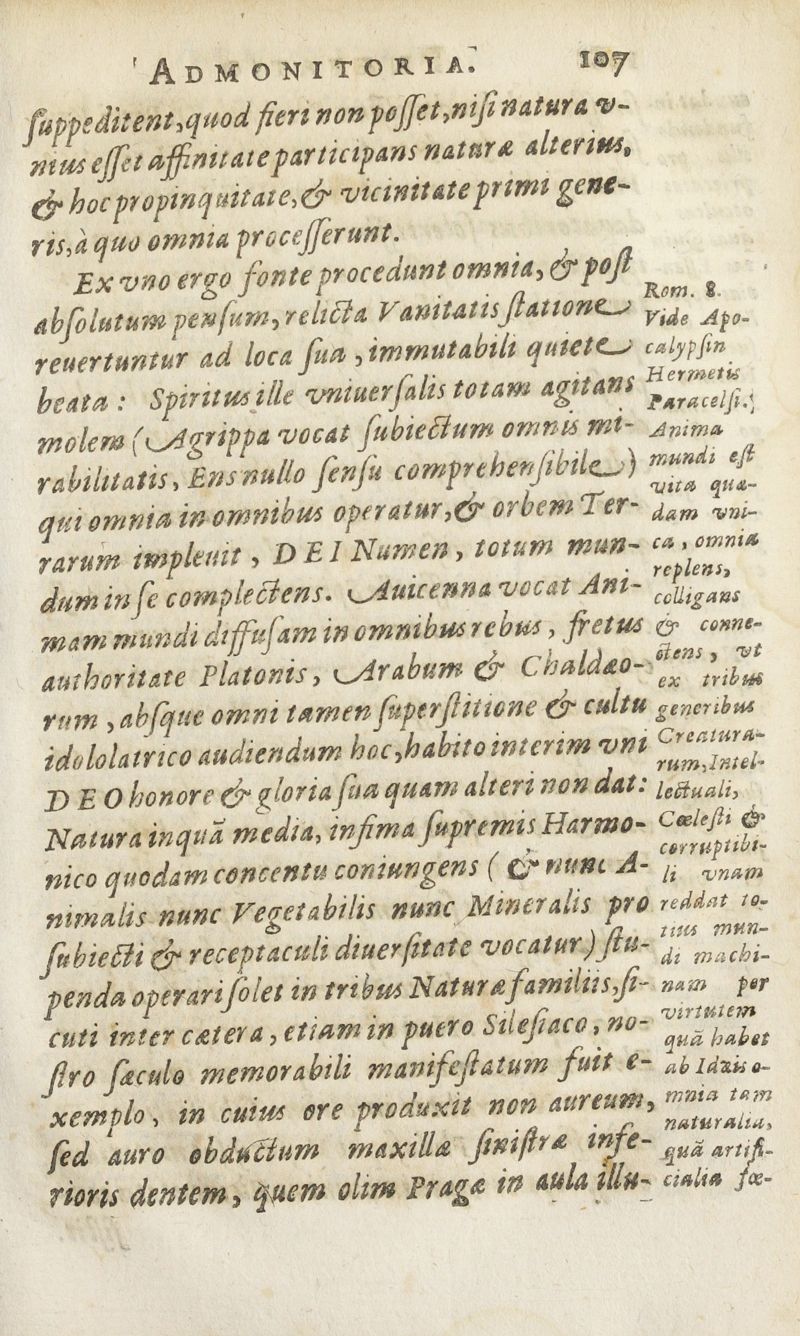 ADMONITORIA. 107
ſuppeditent, quod fieri non poſſet, niſi natura v-
nius eſſet affinitate participans naturæ alterius,
& hoc propinquitate, & vicinitate primi gene-
ris, à quo omnia proceſſerunt.
Ex vno ergo fonte procedunt omnia, & poſt
abſolutum penſum, relicta Vanitatis ſtatione
reuertuntur ad loca ſua, immutabili quiete
beata: Spiritus ille vniuerſalis totam agitans
molem (Agrippa vocat ſubiectum omnis mi-
rabilitatis, Ens nullo ſenſu comprehenſibile)
qui omnia in omnibus operatur, & orbem Ter-
rarum impleuit, DEI Numen, totum mun-
dum in ſe complectens. Auicenna vocat Ani-
mam mundi diffuſam in omnibus rebus, fretus
authoritate Platonis, Arabum & Chaldæo-
rum, abſque omni tamen ſuperſtitione & cultu
idololatrico audiendum hoc, habito interim vni
DEO honore & gloria ſua quam alteri non dat:
Natura inquã media, infima ſupremis Harmo-
nico quodam concentu coniungens (& nunc A-
nimalis nunc Vegetabilis nunc Mineralis pro
ſubiecti & receptaculi diuerſitate vocatur) ſtu-
penda operari ſolet in tribus Naturæ familiis, ſi-
cuti inter cætera, etiam in puero Sileſiaco, no-
ſtro ſæculo memorabili manifeſtatum fuit e-
xemplo, in cuius ore produxit non aureum,
ſed auro obductum maxillæ ſiniſtræ infe-
rioris dentem, quem olim Pragæ in aula illu-
Rom. 8.
Vide Apo-
calypſin
Hermetis
Paracelſi.
Anima
mundi eſt
vita quæ-
dam vni-
ca, omnia
replens,
colligans
& conne-
ctens, vt
ex tribus
generibus
Creatura-
rum, Intel-
lectuali,
Cœleſti &
corruptibi-
li vnam
reddat to-
tius mun-
di machi-
nam per
virtutem
quã habet
ab Idæis o-
mnia tam
naturalia,
quã artifi-
cialia fœ-